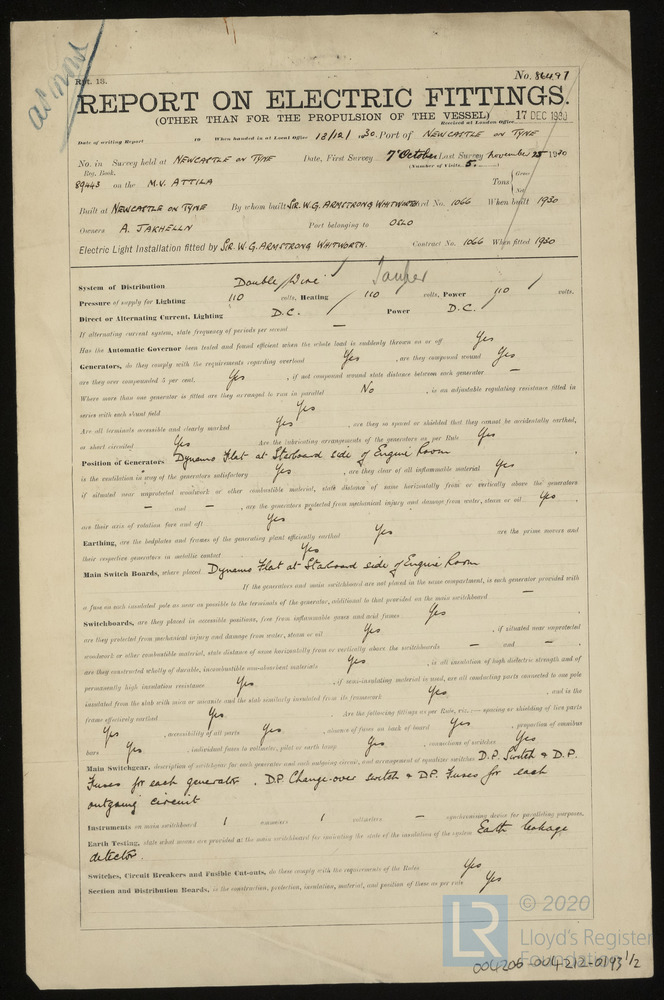 as mind
Rpt. 13. No. 86497
REPORT ON ELECTRIC FITTINGS.
(OTHER THAN FOR THE PROPULSION OF THE VESSEL) 17 DEC 1930
Received at London Office
Date of writing Report 19 When handed in at Local Office 13/12/1930. Port of NEWCASTLE ON TYNE
No. in Survey held at NEWCASTLE ON TYNE Date, First Survey 7th October Last Survey November 25 1930
Reg. Book. (Number of Visits 5.)
89443 on the M.V. ATTILA Tons { Gross Net
Built at NEWCASTLE ON TYNE By whom built SIR W.G. ARMSTRONG WHITWORTH Yard No. 1066 When built 1930
Owners A. JAKHELLN Port belonging to OSLO
Electric Light Installation fitted by SIR W.G. ARMSTRONG WHITWORTH. Contract No. 1066 When fitted 1930
System of Distribution Double Wire
Pressure of supply for Lighting 110 volts, Heating 110 volts, Power 110 volts.
Direct or Alternating Current, Lighting D.C. Power D.C.
If alternating current system, state frequency of periods per second —
Has the Automatic Governor been tested and found efficient when the whole load is suddenly thrown on or off Yes
Generators, do they comply with the requirements regarding overload Yes, are they compound wound Yes
are they over compounded 5 per cent. Yes, if not compound wound state distance between each generator —
Where more than one generator is fitted are they arranged to run in parallel No, is an adjustable regulating resistance fitted in
series with each shunt field Yes
Are all terminals accessible and clearly marked Yes, are they so spaced or shielded that they cannot be accidentally earthed,
or short circuited Yes Are the lubricating arrangements of the generators as per Rule Yes
Position of Generators Dynamo Flat at Starboard side of Engine Room
is the ventilation in way of the generators satisfactory Yes, are they clear of all inflammable material Yes
if situated near unprotected woodwork or other combustible material, state distance of same horizontally from or vertically above the generators
— and —, are the generators protected from mechanical injury and damage from water, steam or oil Yes,
are their axis of rotation fore and aft Yes
Earthing, are the bedplates and frames of the generating plant efficiently earthed Yes are the prime movers and
their respective generators in metallic contact Yes
Main Switch Boards, where placed Dynamo Flat at Starboard side of Engine Room
If the generators and main switchboard are not placed in the same compartment, is each generator provided with
a fuse on each insulated pole as near as possible to the terminals of the generator, additional to that provided on the main switchboard —
Switchboards, are they placed in accessible positions, free from inflammable gases and acid fumes Yes
are they protected from mechanical injury and damage from water, steam or oil Yes, if situated near unprotected
woodwork or other combustible material, state distance of same horizontally from or vertically above the switchboards — and —
are they constructed wholly of durable, incombustible non-absorbent materials Yes, is all insulation of high dielectric strength and of
permanently high insulation resistance Yes, if semi-insulating material is used, are all conducting parts connected to one pole
insulated from the slab with mica or micanite and the slab similarly insulated from its framework Yes, and is the
frame effectively earthed Yes Are the following fittings as per Rule, viz.:— spacing or shielding of live parts
Yes, accessibility of all parts Yes, absence of fuses on back of board Yes, proportion of omnibus
bars Yes, individual fuses to voltmeter, pilot or earth lamp Yes, connections of switches Yes
Main Switchgear, description of switchgear for each generator and each outgoing circuit, and arrangement of equalizer switches D.P. Switch & D.P.
Fuses for each generator. D.P. Change-over switch & D.P. Fuses for each
outgoing circuit
Instruments on main switchboard 1 ammeters 1 voltmeters — synchronising device for paralleling purposes.
Earth Testing, state what means are provided at the main switchboard for indicating the state of the insulation of the system Earth leakage
detector.
Switches, Circuit Breakers and Fusible Cut-outs, do these comply with the requirements of the Rules Yes
Section and Distribution Boards, is the construction, protection, insulation, material, and position of these as per rule Yes
LR © 2020
Lloyd's Register
Foundation
004206-004212-0193 1/2